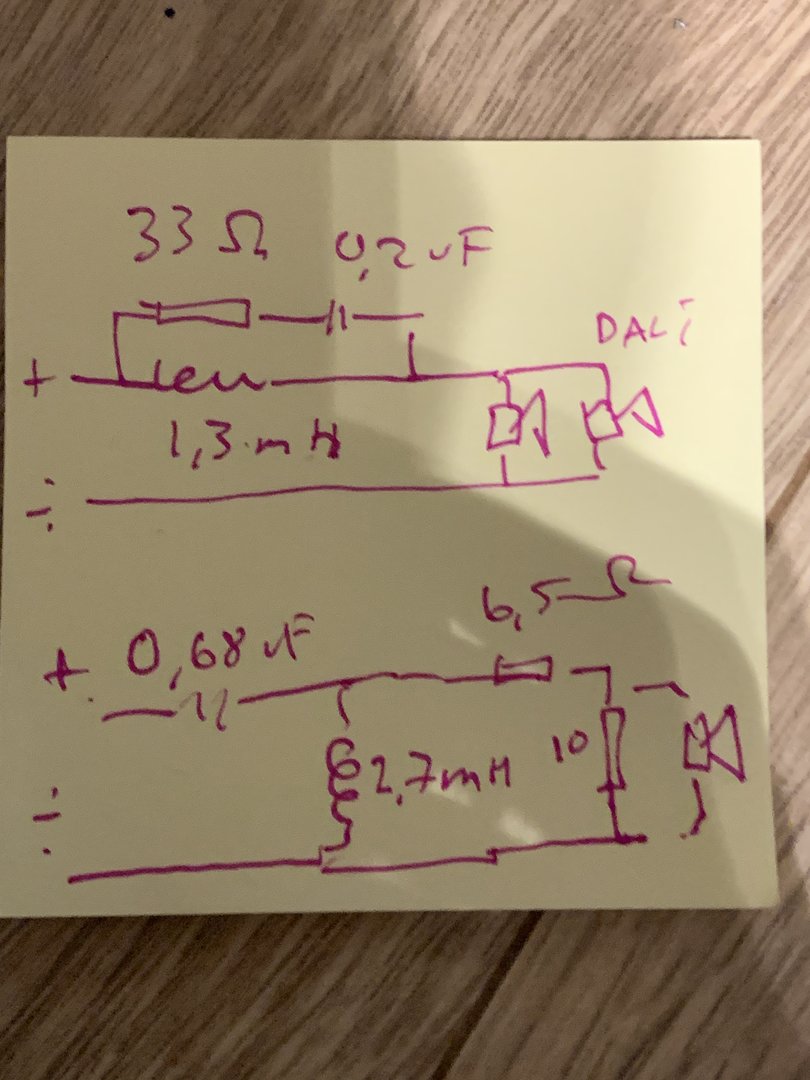 33 Ω 0,2 uF
DALi
+
1,3 mH
÷
6,5 Ω
+ 0,68 uF
10
2,7mH
÷